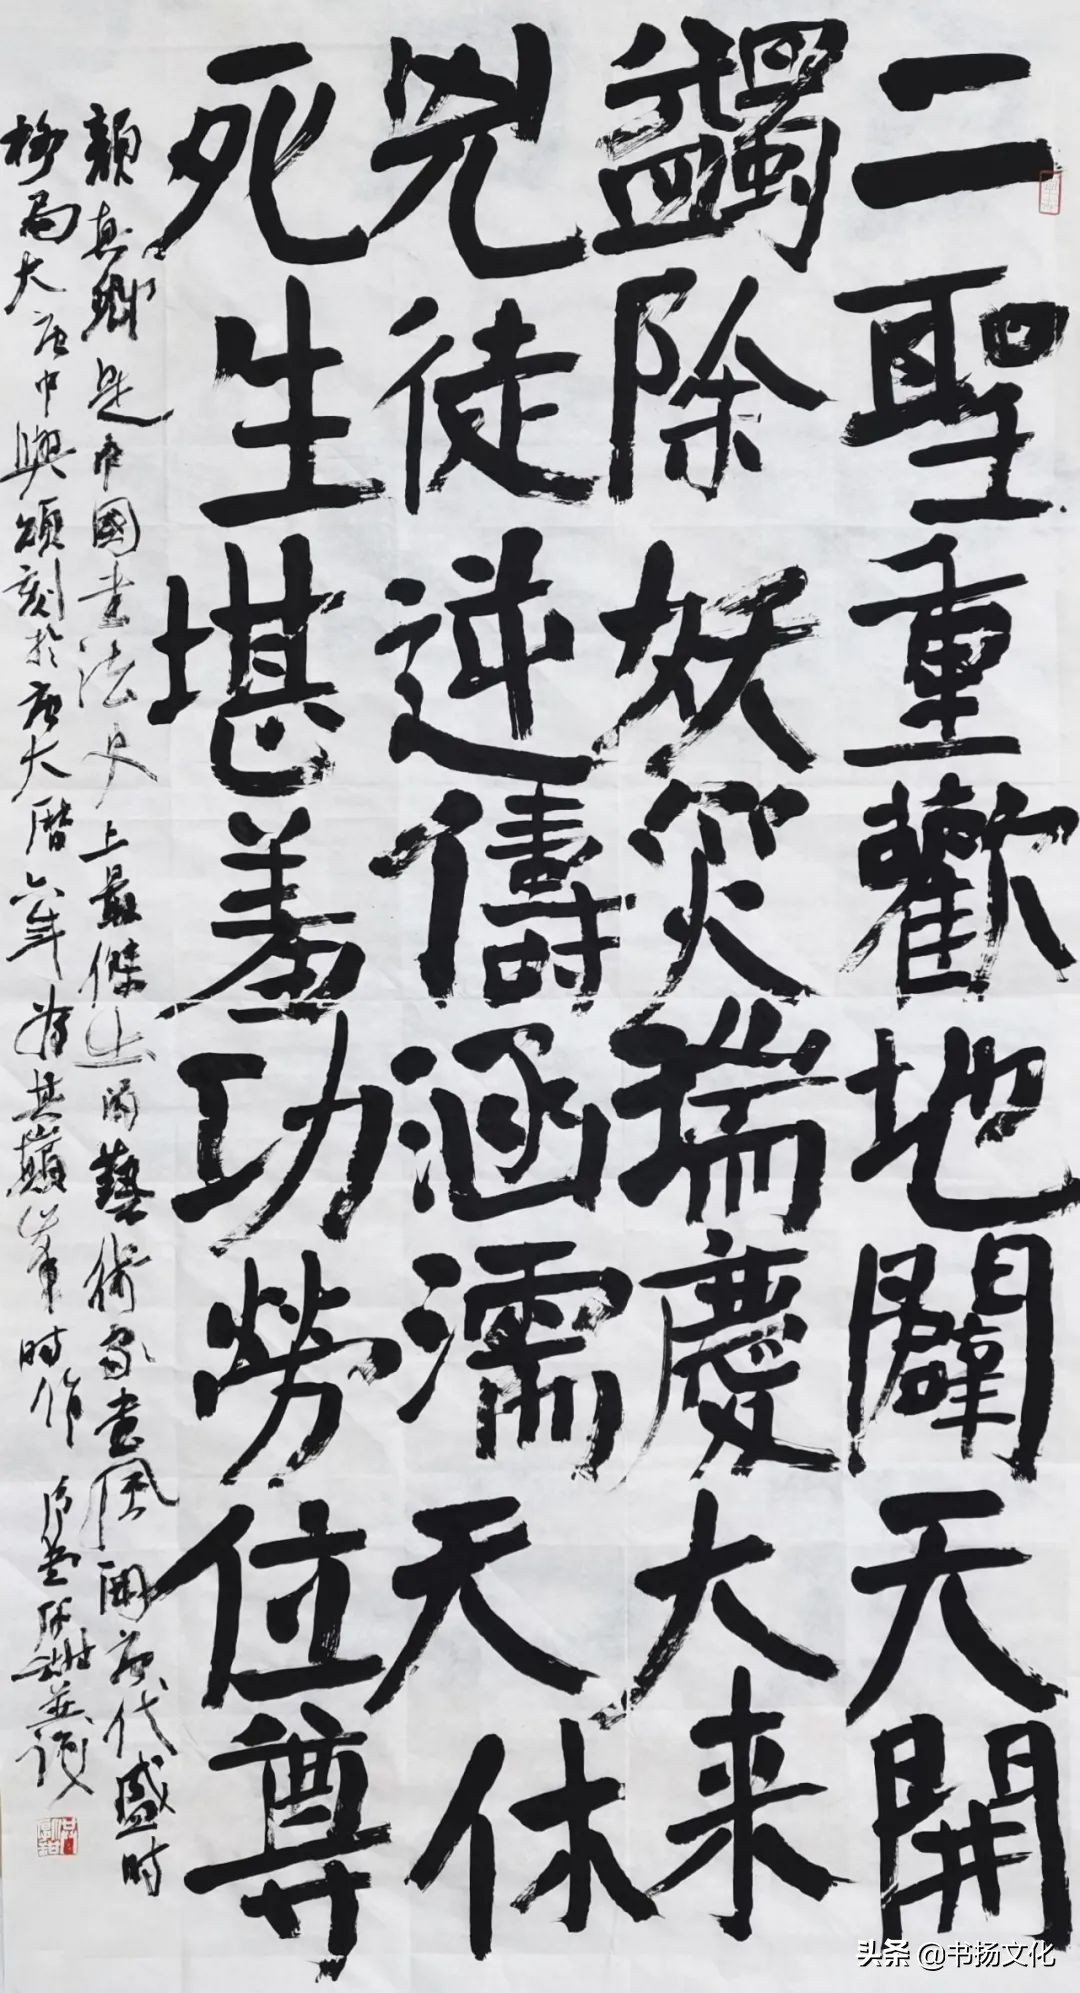 二聖重歡地闢天開
蠲除妖災瑞慶大来
兇徒逆儔涵濡天休
死生堪羞功勞位尊
顏真卿是中國書法史上最傑出的藝術家書風開唐代盛時
格局大唐中興頌刻於唐大曆六年為其巔峯時作
头条 @书扬文化